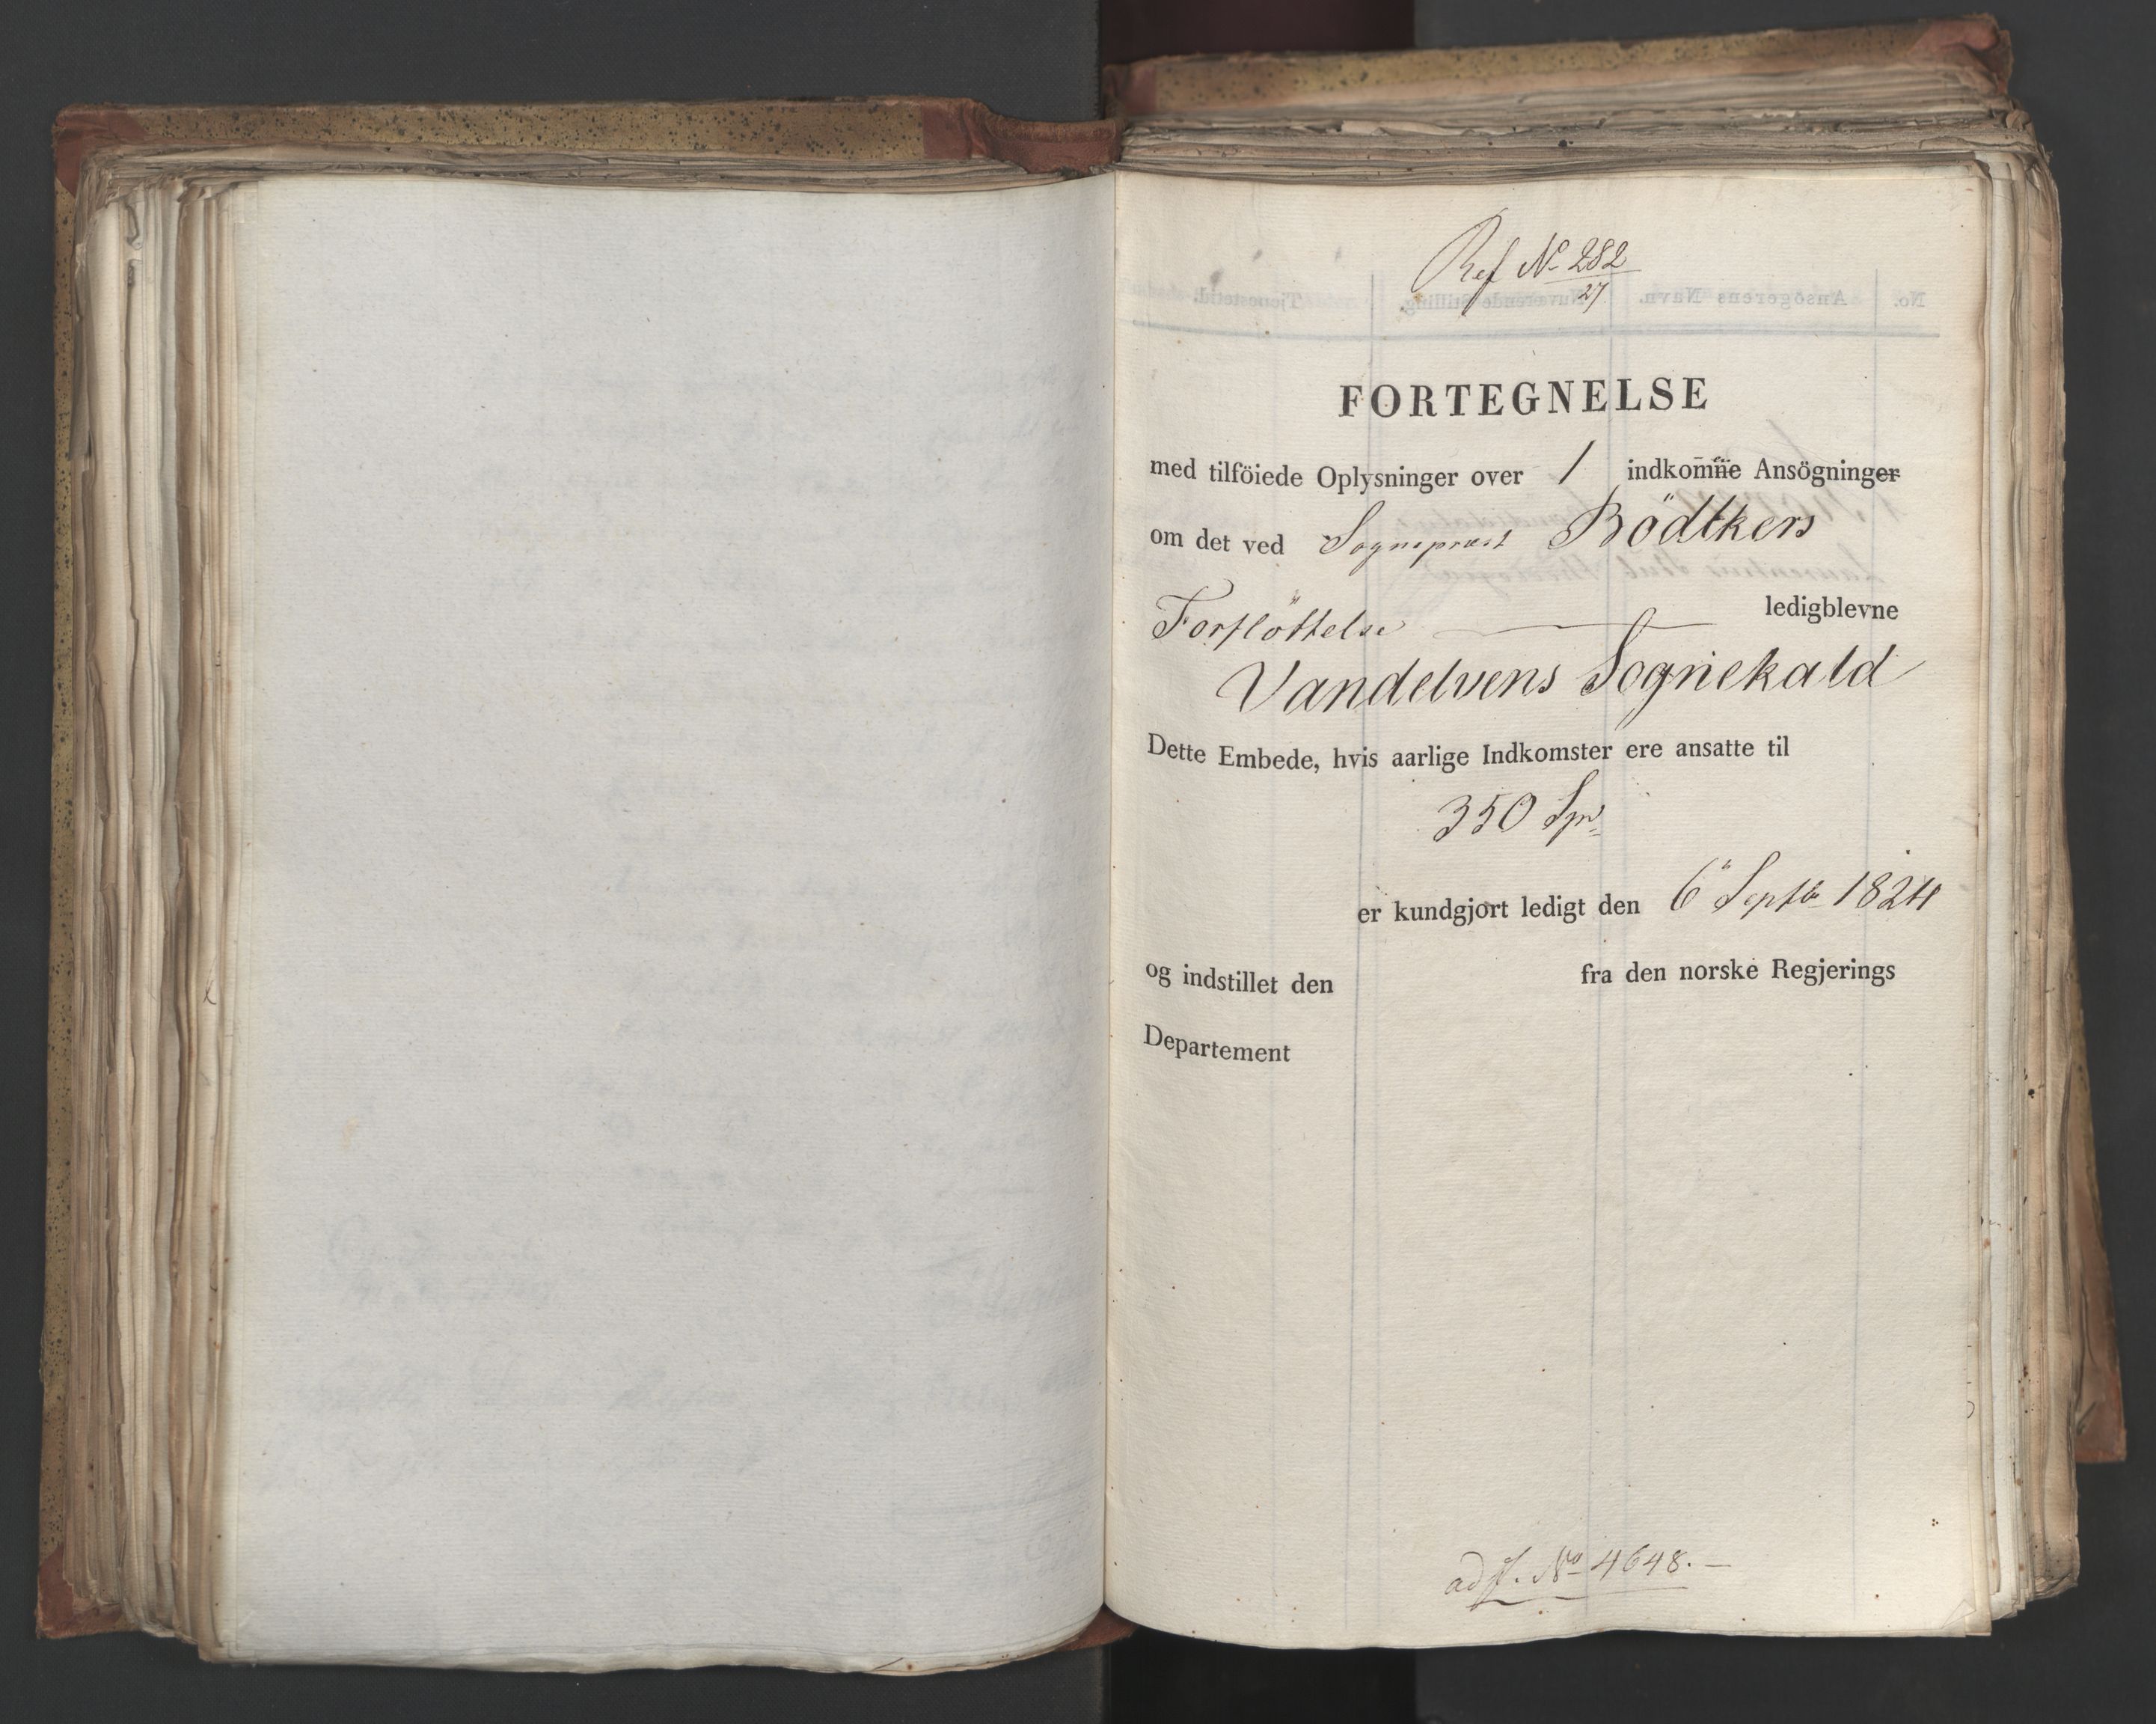 Ref No 282
27
FORTEGNELSE
med tilföiede Oplysninger over 1 indkomne Ansögninger
om det ved Sognepræst Bödtkers
Forflöttelse ledigblevne
Vandelvens Sognekald
Dette Embede, hvis aarlige Indkomster ere ansatte til
350 Spd
er kundgjort ledigt den 6te Septbr 1824
og indstillet den fra den norske Regjerings
Departement
No 4648. –